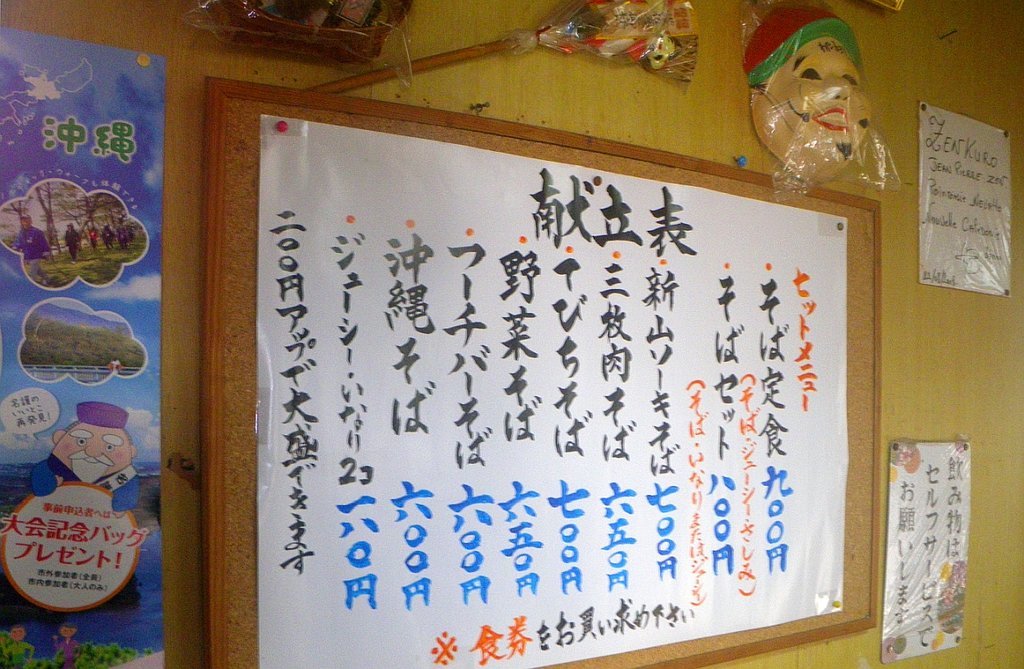 献立表
セットメニュー
・そば定食 九〇〇円
（そば・ジューシー・さしみ）
・そばセット 八〇〇円
（そば・いなりまたはジューシー）
・新山ソーキそば 七〇〇円
・三枚肉そば 六五〇円
・てびちそば 七〇〇円
・野菜そば 六五〇円
・フーチバーそば 六〇〇円
・沖縄そば 六〇〇円
・ジューシー・いなり2コ 一八〇円
二〇〇円アップで大盛できます
※食券をお買い求め下さい
沖縄
名護の
いいとこ
再発見!
事前申込者へは
大会記念バッグ
プレゼント!
市外参加者(全員)
市内参加者(大人のみ)
ZENKURO
JEAN PIERRE ZEN
Nouvelle Calédonie
飲み物は
セルフサービスで
お願いします